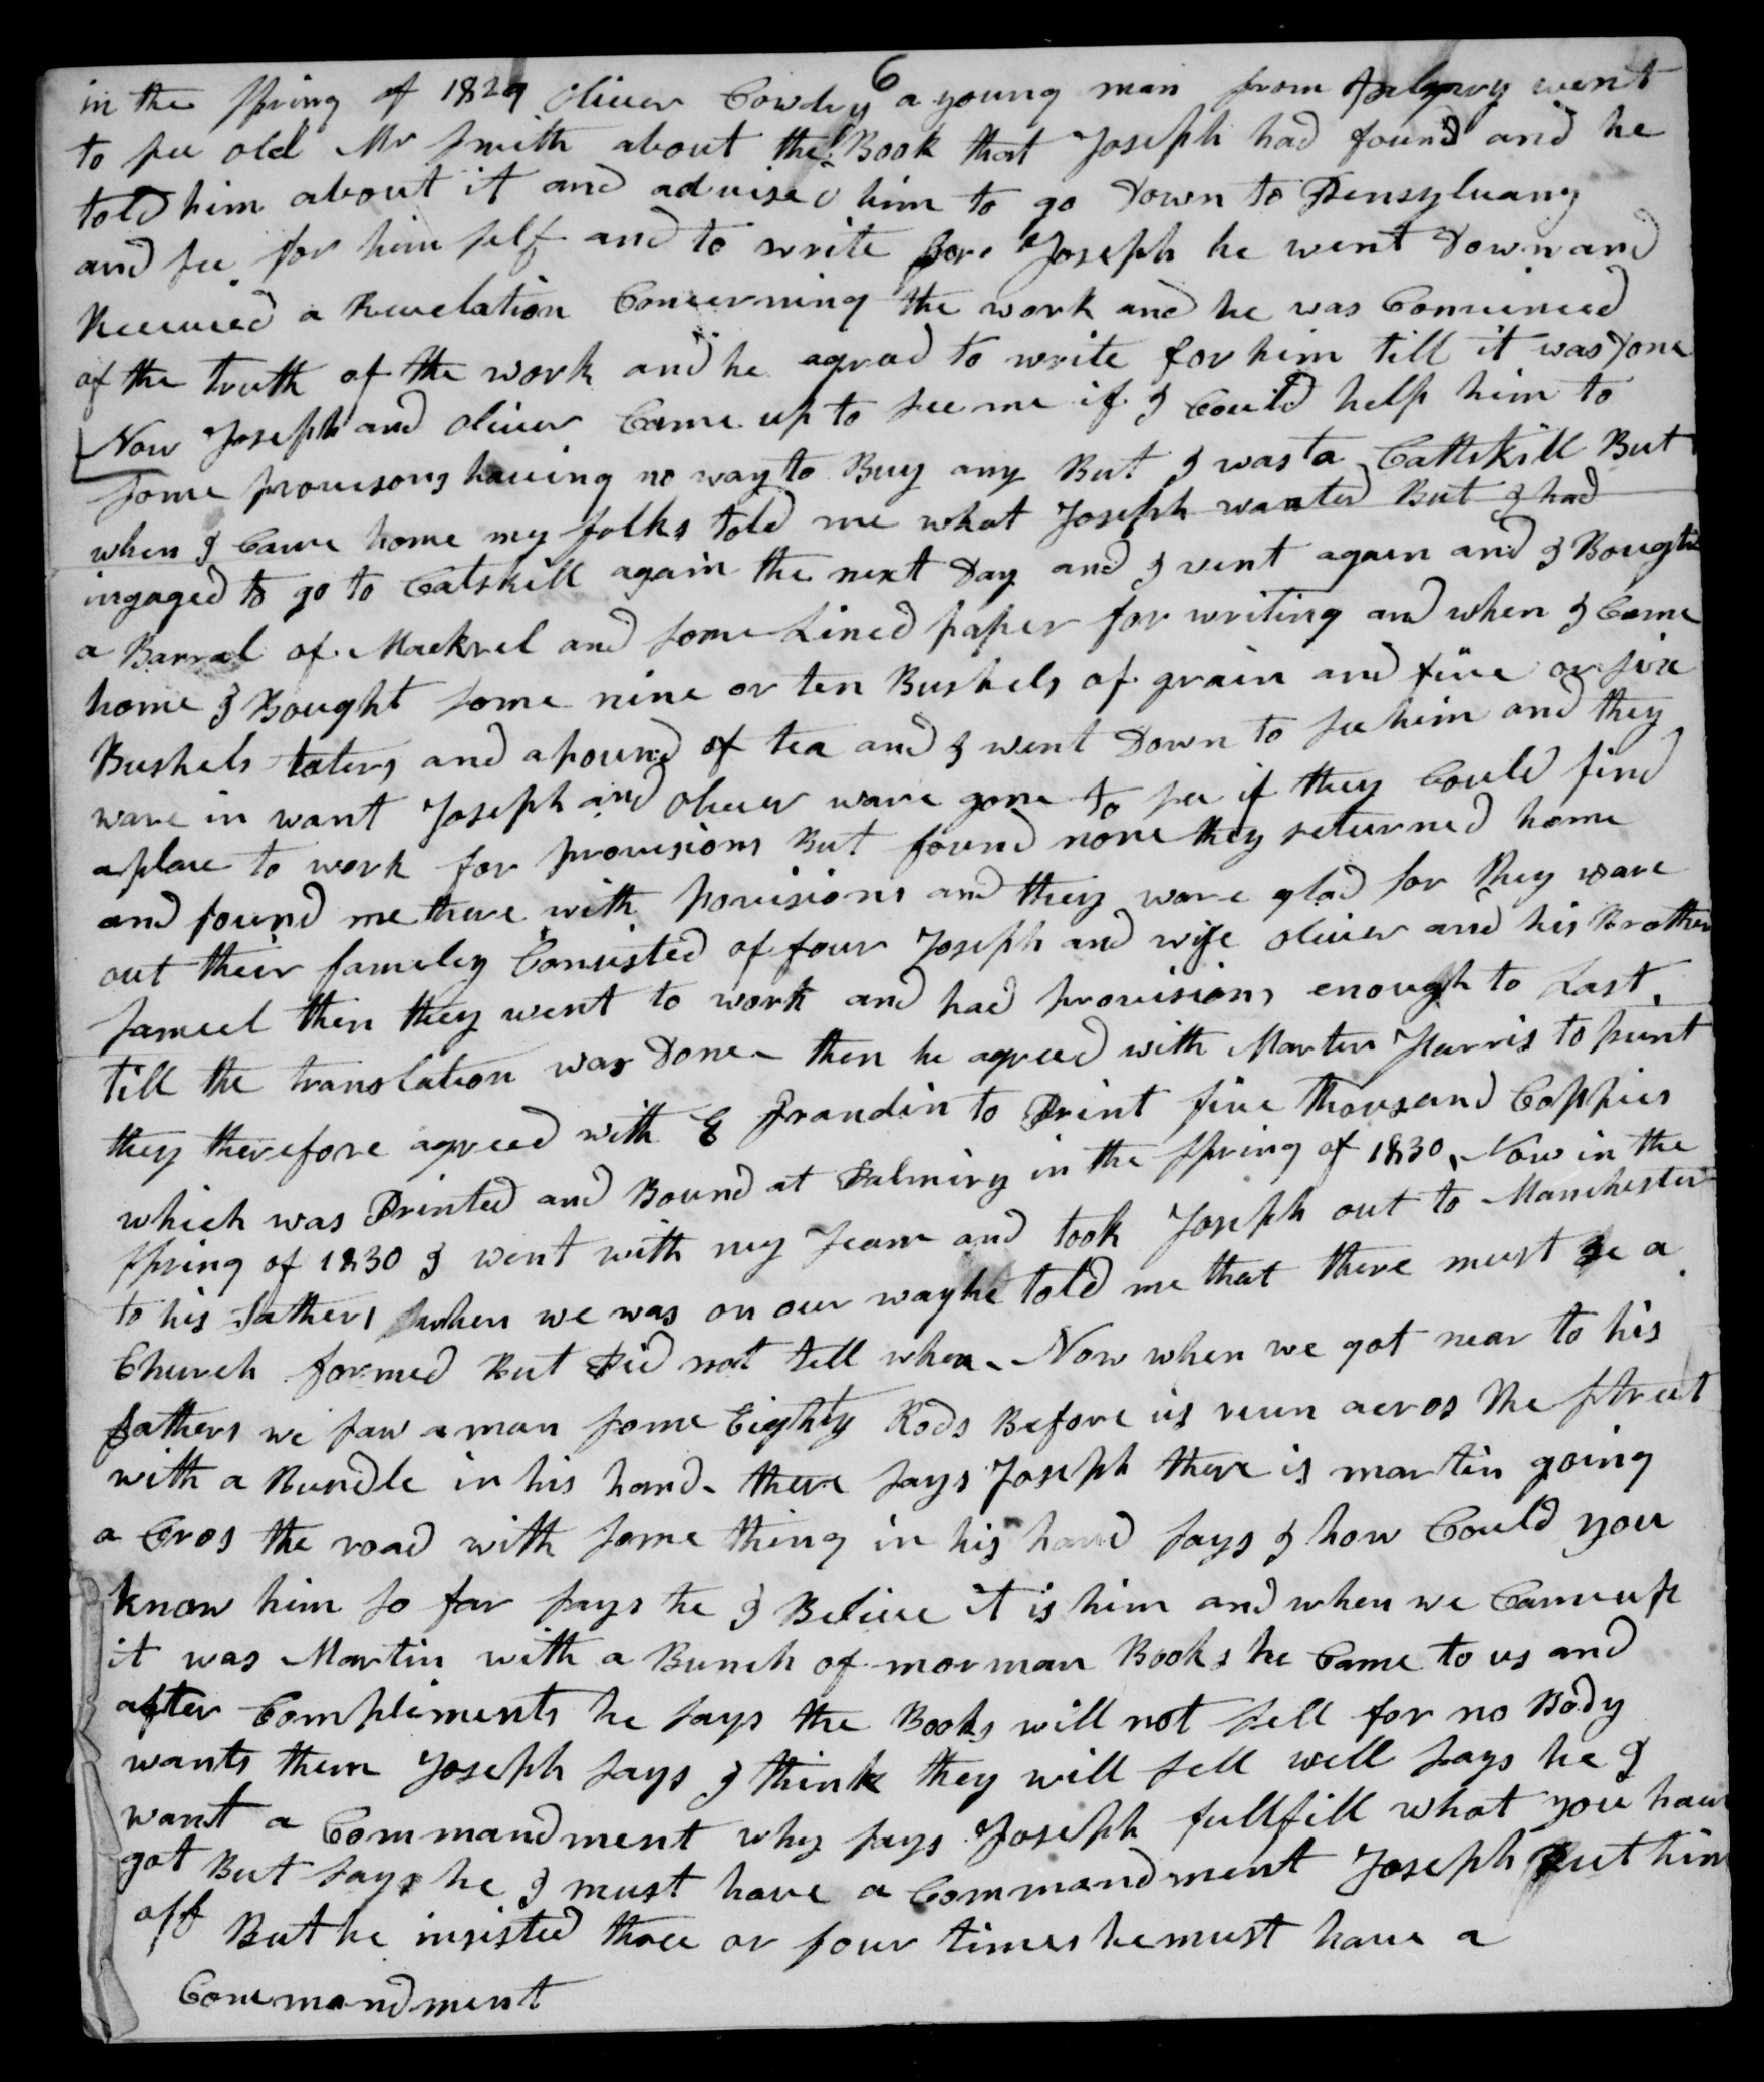 6
in the Spring of 1829 Oliver Cowdry a young man from Palmyry went
to see old Mr Smith about the Book that Joseph had found and he
told him about it and advised him to go Down to Pensylvany
and see for him self and to write for Joseph he went Down and
Received a Revelation Concerning the work and he was Convinced
of the truth of the work and he agread to write for him till it was Done
Now Joseph and Oliver Came up to see me if I Could help him to
some provisons having no way to Buy any But I was to Cattskill But
when I Came home my folks told me what Joseph wanted But I had
ingaged to go to Catskill again the next Day and I went again and I Bought
a Barral of Mackrel and some Lined paper for writing and when I Came
home I Bought some nine or ten Bushels of grain and five or six
Bushels taters and a pound of tea and I went Down to see him and they
ware in want Joseph and Oliver ware gone to see if they Could find
a place to work for provisions But found none they returned home
and found me there with provisions and they ware glad for they ware
out their fameley Consisted of four Joseph and wife Oliver and his Brother
Samuel then they went to work and had provisions enough to Last
till the translation was Done - then he agreed with Marten Harris to print
they therefore agreed with E Grandin to Print five thousand Coppies
which was Printed and Bound at Palmiry in the Spring of 1830, Now in the
Spring of 1830 I went with my Team and took Joseph out to Manchester
to his Fathers when we was on our way he told me that there must be a
Church formed But did not tell when - Now when we got near to his
fathers we saw a man some Eighty Rods Before us run acros the street
with a Bundle in his hand - there says Joseph there is martin going
a Cros the road with some thing in his hand says I how Could you
know him so far says he I Believe it is him and when we Came up
it was Martin with a Bunch of morman Books he Came to us and
after Compliments he says the Books will not sell for no Body
wants them Joseph says I think they will sell well says he I
want a Commandment why says Joseph fullfill what you have
got But says he I must have a Commandment Joseph put him
off But he insisted three or four times he must have a
Commandment